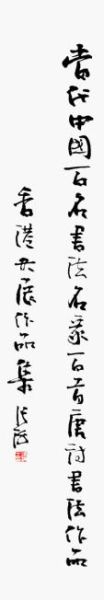 当代中國百名書法名家百首唐詩書法作品
香港大展作品集